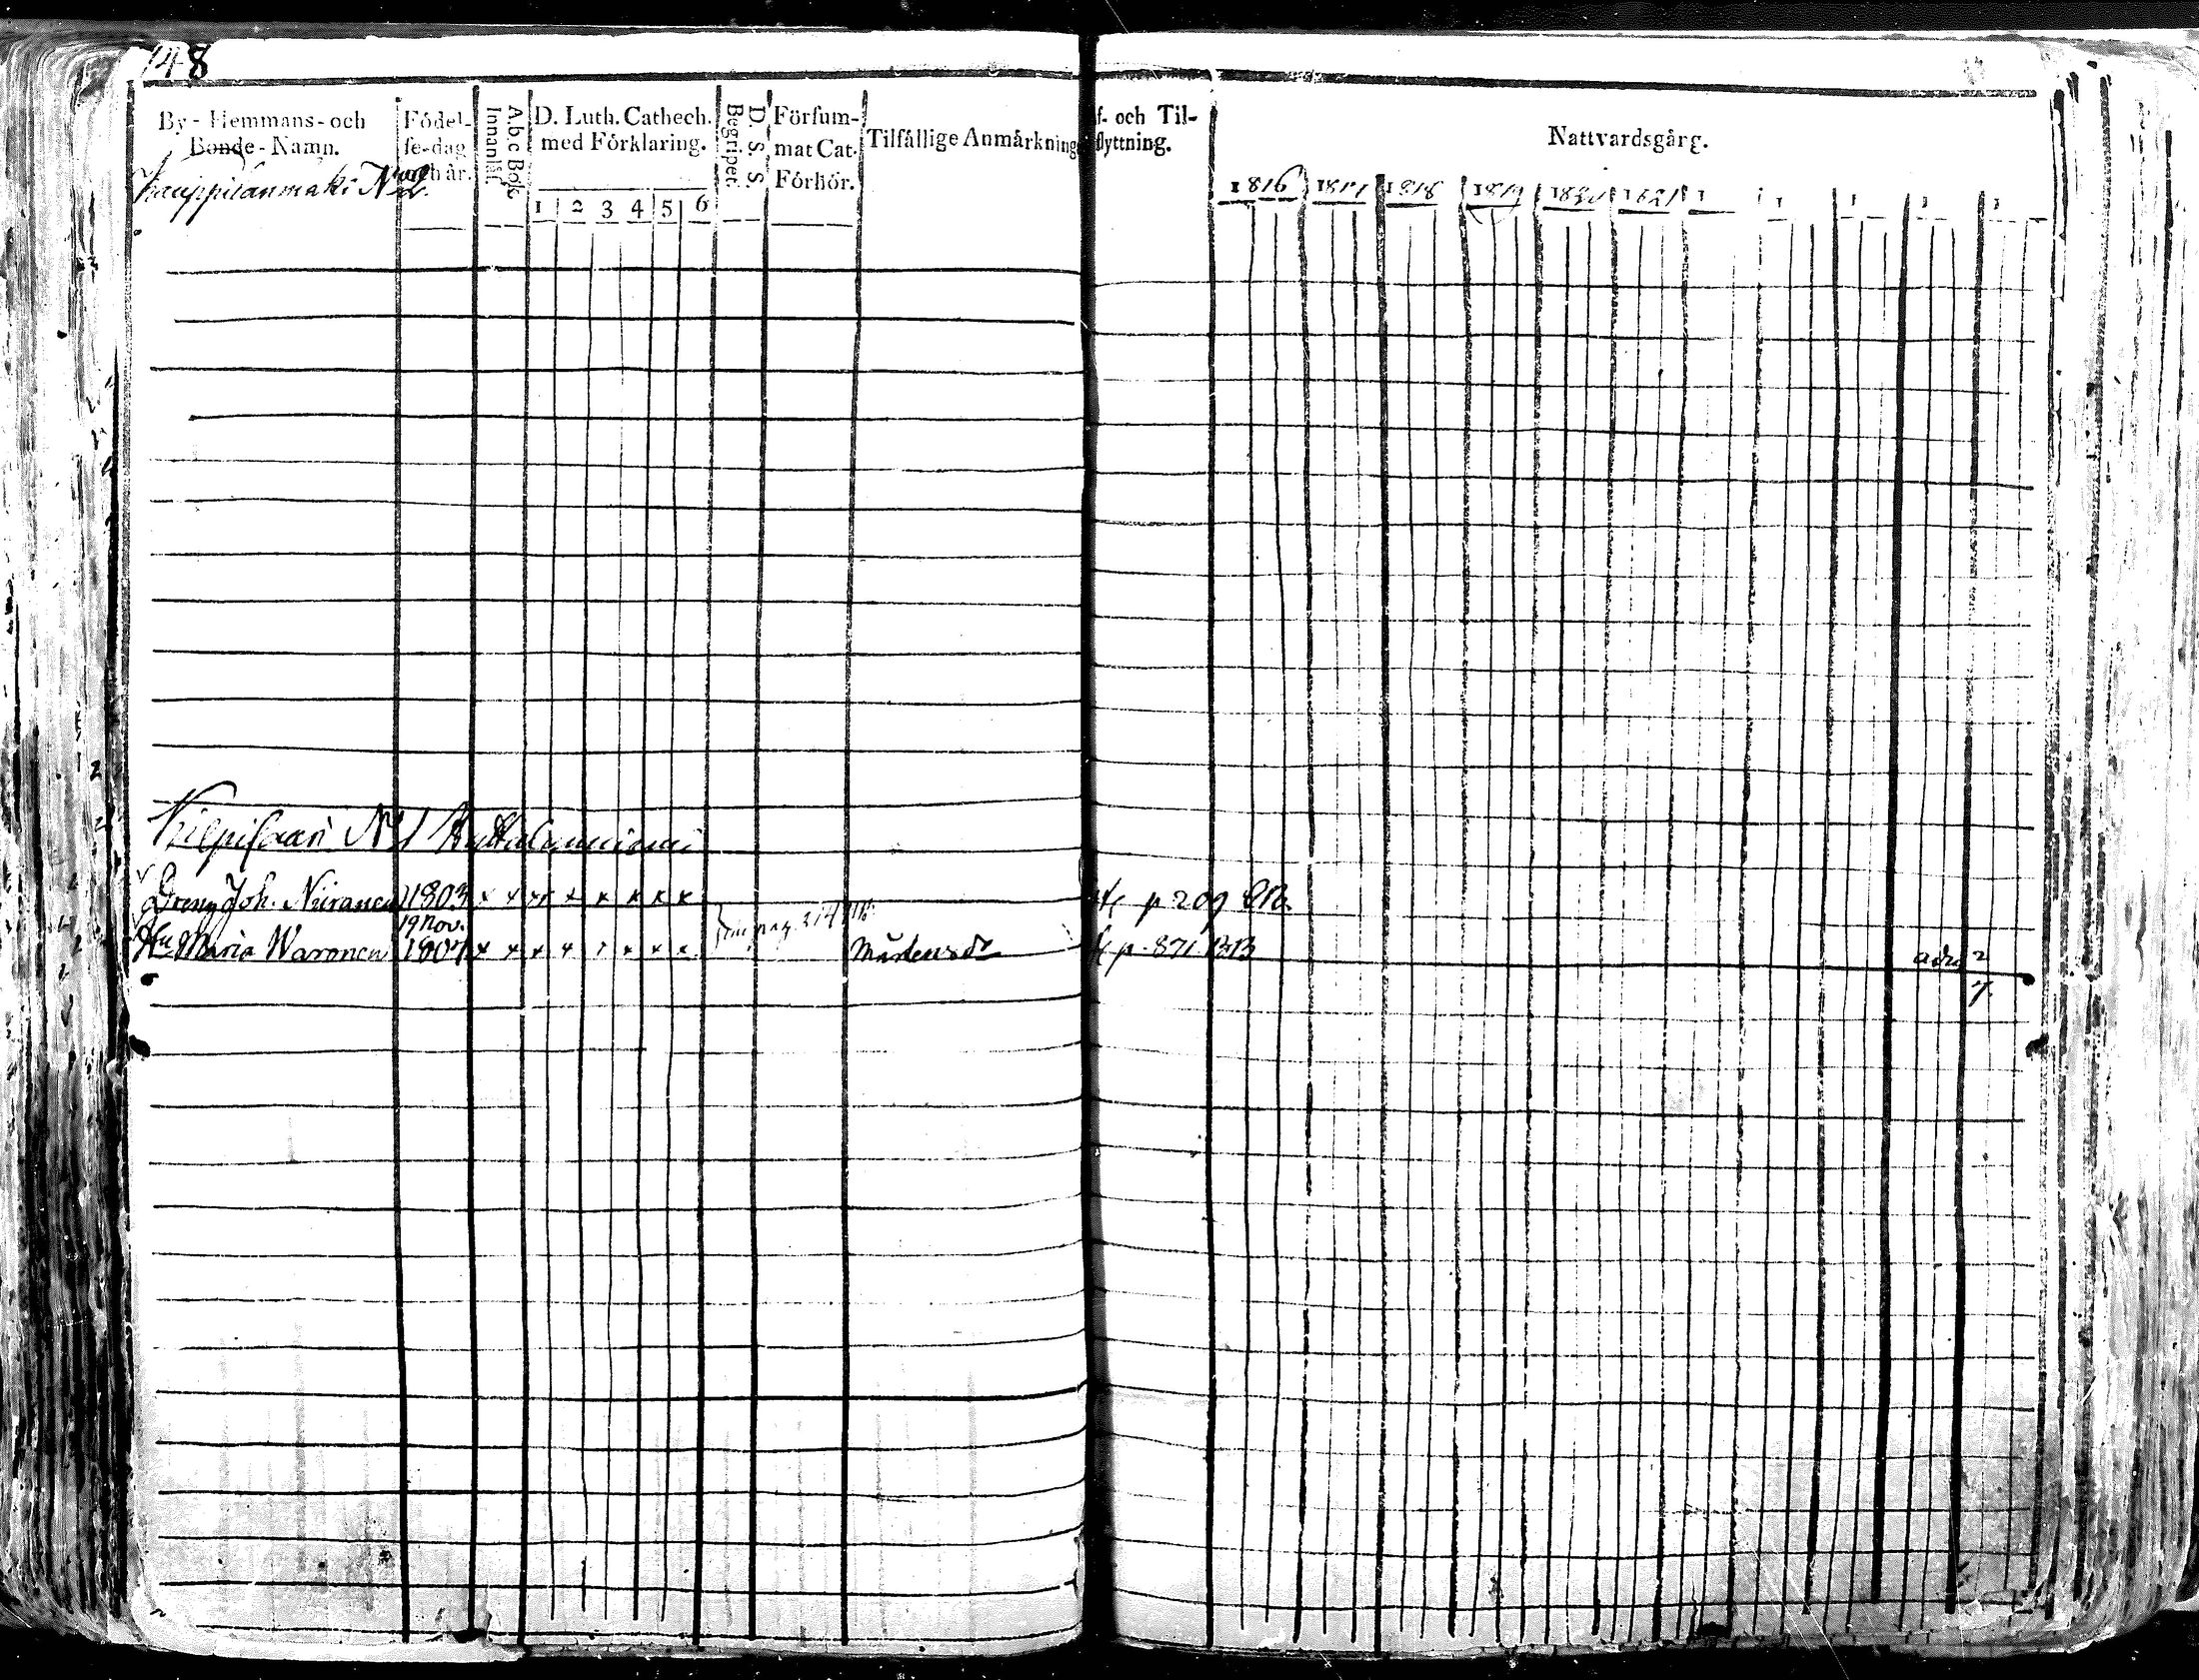 148
By-Hemmans-och Bonde-Namn.
Födel-se-dag och år.
A b c Bok Innanläs.
D. Luth. Cathech. med Förklaring.
1 2 3 4 5 6
D. S. S. Begripet.
Försum-mat Cat. Förhör.
Tilfällige Anmärkning
f- och Til-flyttning.
Nattvardsgång.
1816 1817 1818 1819 1820 1821 1 1 1 1 1
Kauppilanmäki N 2
Kilpisaari N 1
Dreng Joh. Niiranen 1803 x x x x x x x x p 209
19 Nov.
Hu Maria Waronen 1807 x x x x x x x Mårtensdr p. 871
2
7